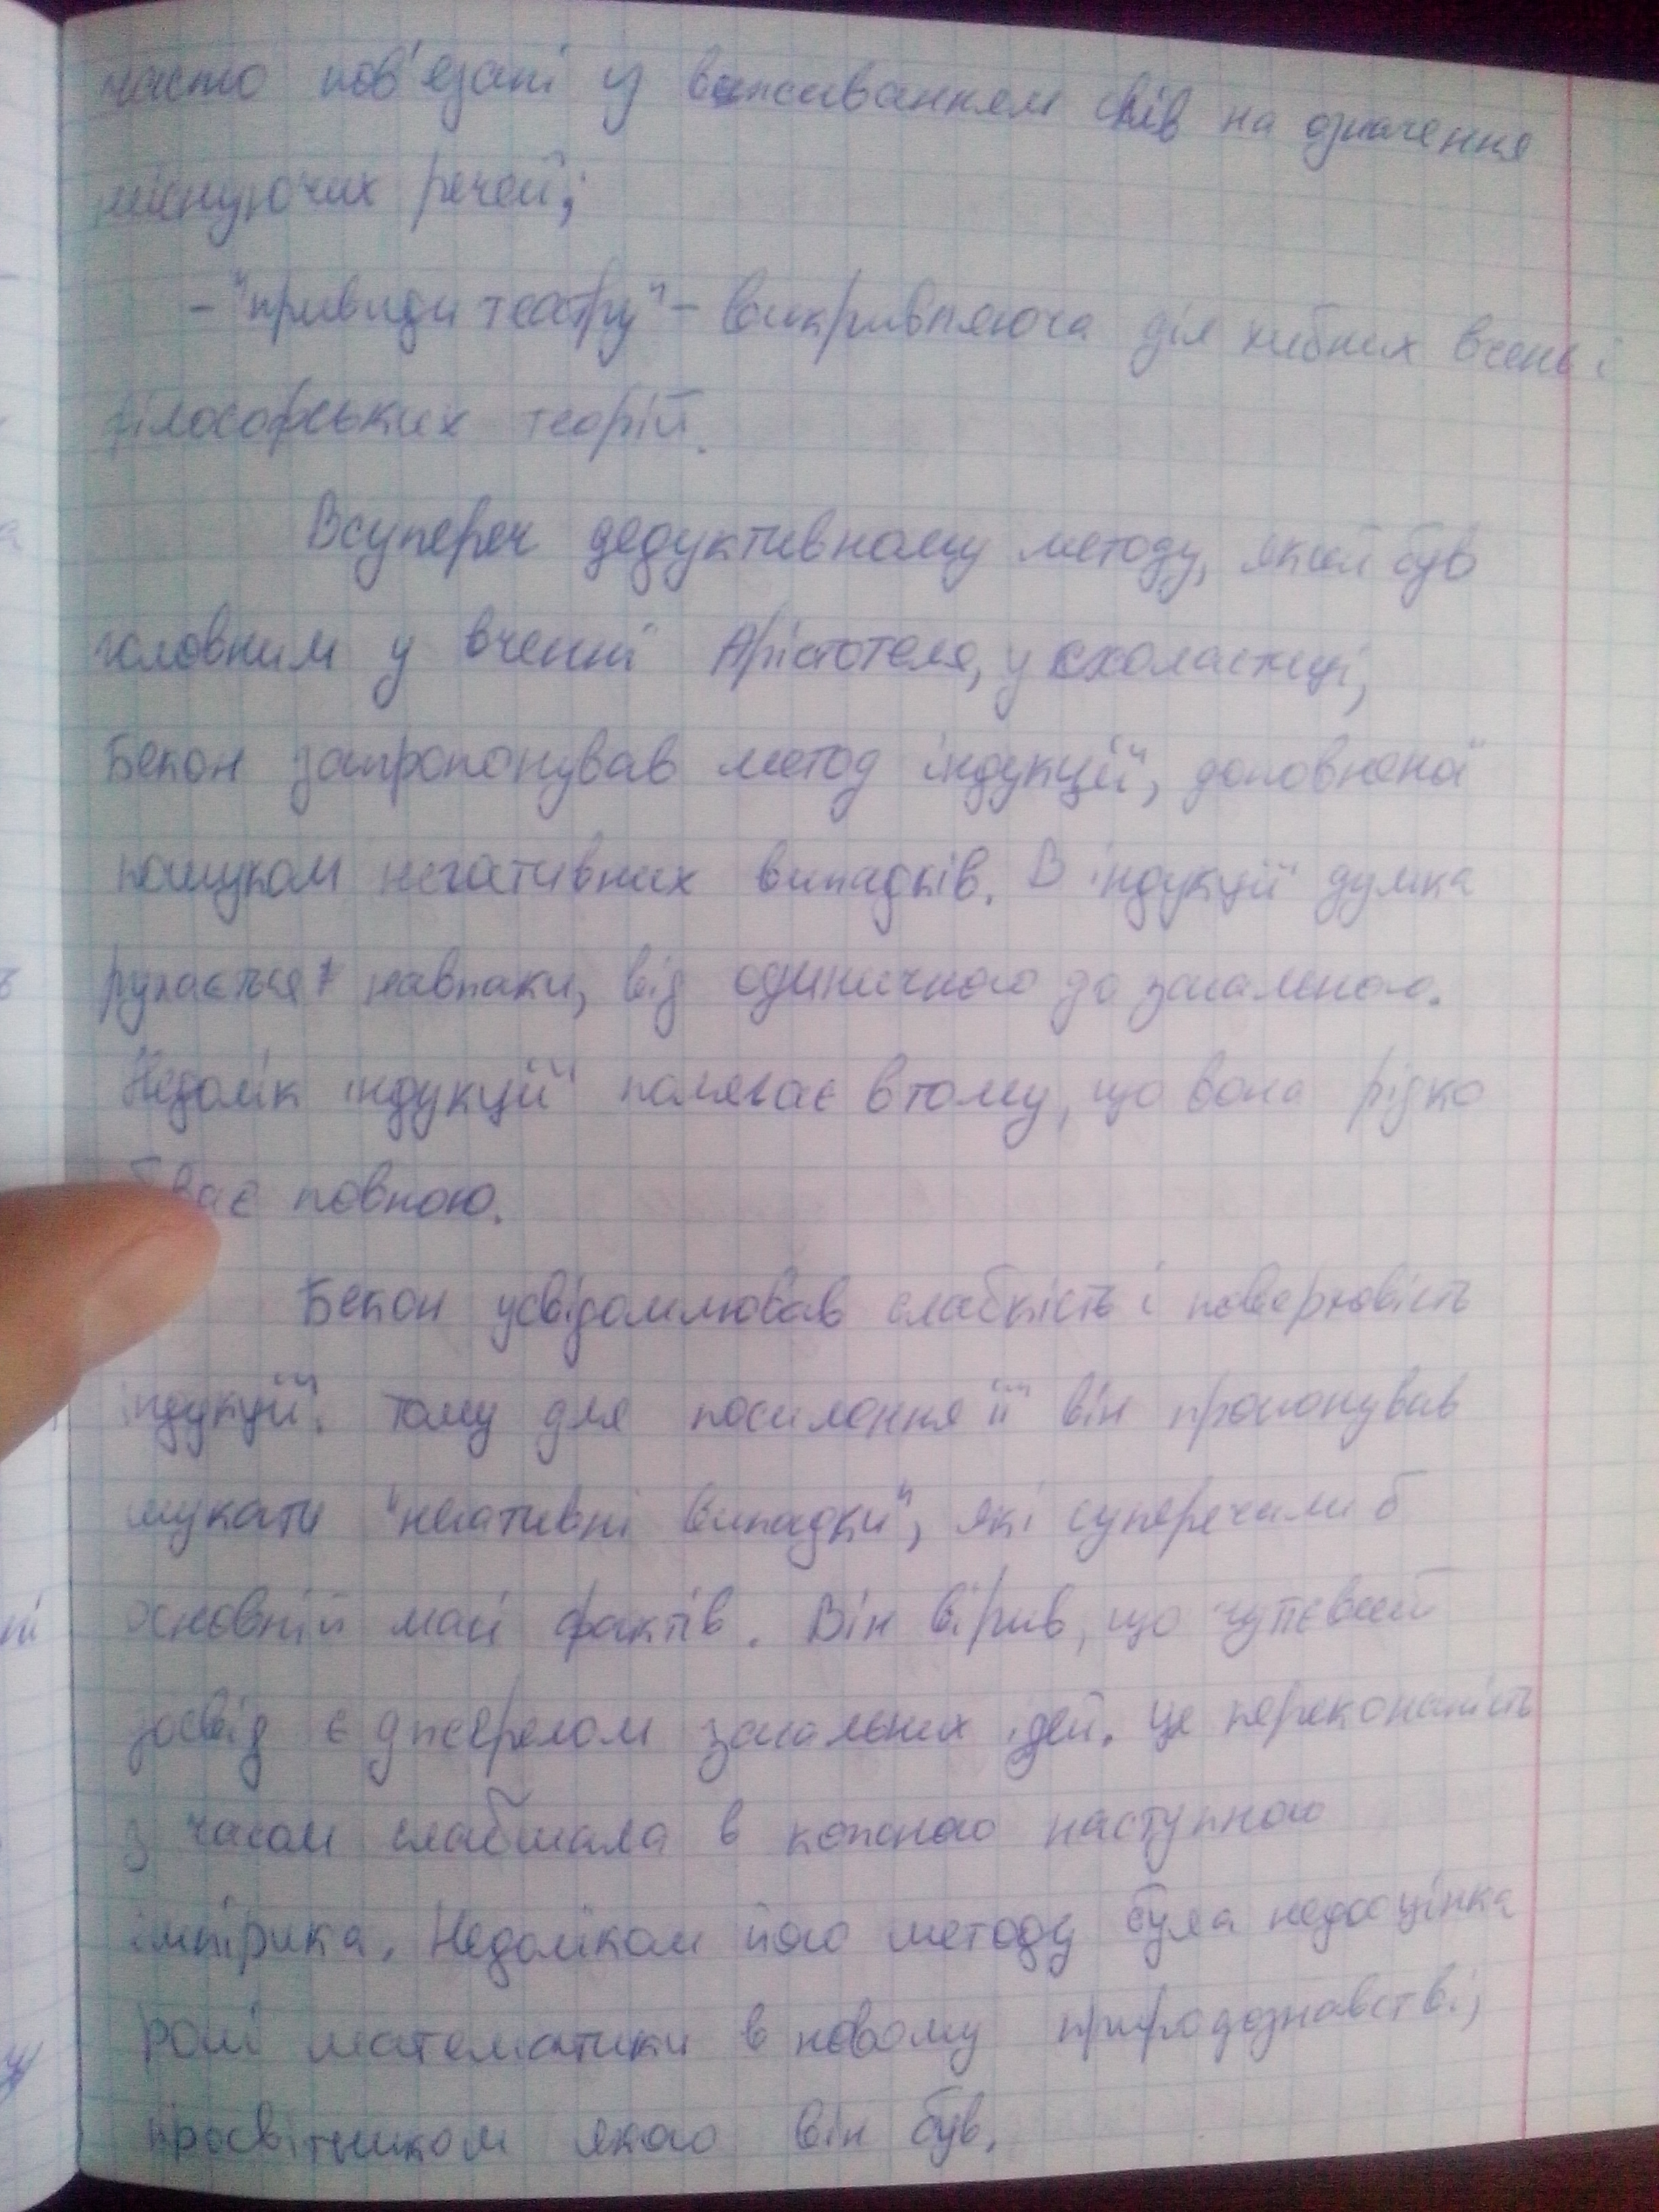 часто пов'язані у вживанням слів на означення
неіснуючих речей;
- "привиди театру" - викривляюча дія хибних вчень і
філософських теорій.
Всупереч дедуктивному методу, який був
головним у вченні Арістотеля, у схоластиці,
Бекон запропонував метод індукції, доповненої
пошуком негативних випадків. В індукції думка
рухається навпаки, від одиничного до загального.
Недолік індукції полягає в тому, що вона рідко
буває повною.
Бекон усвідомлював слабкість і поверховість
індукції. Тому для посилення її він пропонував
шукати "негативні випадки", які суперечили б
основній масі фактів. Він вірив, що чуттєвий
досвід є джерелом загальних ідей. Це переконаність
з часом слабшала в кожного наступного
емпірика. Недоліком його методу була недооцінка
ролі математики в новому природознавстві,
просвітником якого він був.